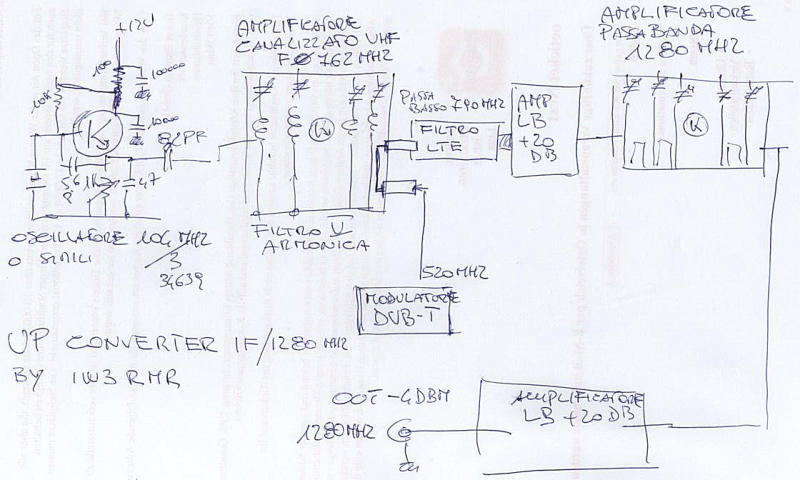 +12V
100
100000
10K
1000
K
82PF
56
1K
47
OSCILLATORE 104 MHZ
O SIMILI
3
34639
AMPLIFICATORE
CANALIZZATO VHF
FØ 762 MHZ
K
FILTRO V
ARMONICA
PASSA
BASSO 790MHZ
FILTRO
LTE
AMP
LB
+20
DB
AMPLIFICATORE
PASSABANDA
1280 MHZ
K
520MHZ
MODULATORE
DVB-T
UP CONVERTER IF/1280 MHZ
BY IW3RMR
OUT -4DBM
1280MHZ
AMPLIFICATORE
LB +20DB